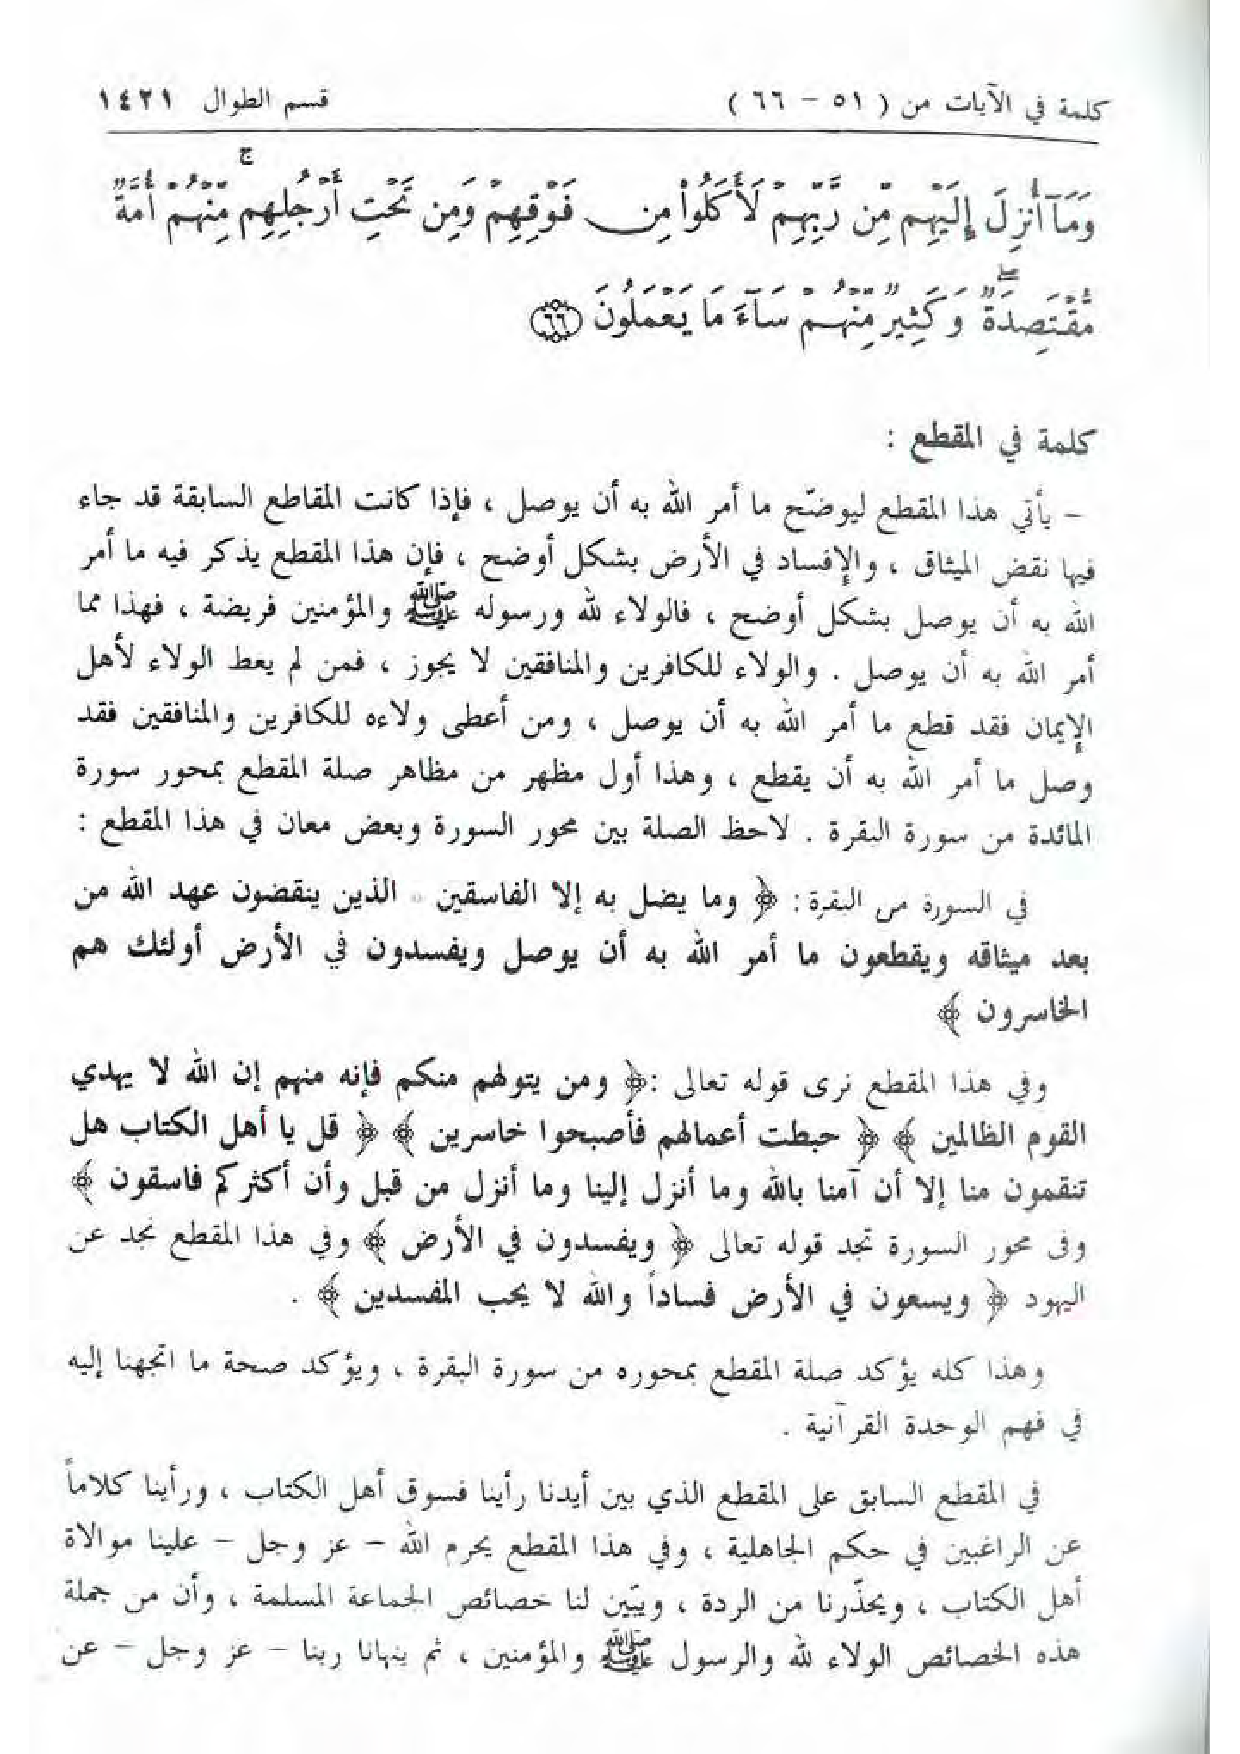 كلمة في الآيات من ( ٥١ - ٦٦ ) قسم الطوال ١٤٢١
وَمَآ أُنزِلَ إِلَيْهِم مِّن رَّبِّهِمْ لَأَكَلُوا۟ مِن فَوْقِهِمْ وَمِن تَحْتِ أَرْجُلِهِم ۚ مِّنْهُمْ أُمَّةٌ
مُّقْتَصِدَةٌ ۖ وَكَثِيرٌ مِّنْهُمْ سَآءَ مَا يَعْمَلُونَ ٦٦
كلمة في المقطع :
- يأتي هذا المقطع ليوضّح ما أمر الله به أن يوصل ، فإذا كانت المقاطع السابقة قد جاء
فيها نقض الميثاق ، والإفساد في الأرض بشكل أوضح ، فإن هذا المقطع يذكر فيه ما أمر
الله به أن يوصل بشكل أوضح ، فالولاء لله ورسوله ﷺ والمؤمنين فريضة ، فهذا مما
أمر الله به أن يوصل . والولاء للكافرين والمنافقين لا يجوز ، فمن لم يعط الولاء لأهل
الإيمان فقد قطع ما أمر الله به أن يوصل ، ومن أعطى ولاءه للكافرين والمنافقين فقد
وصل ما أمر الله به أن يقطع ، وهذا أول مظهر من مظاهر صلة المقطع بمحور سورة
المائدة من سورة البقرة . لاحظ الصلة بين محور السورة وبعض معان في هذا المقطع :
في السورة من البقرة : ﴿ وما يضل به إلا الفاسقين ۝ الذين ينقضون عهد الله من
بعد ميثاقه ويقطعون ما أمر الله به أن يوصل ويفسدون في الأرض أولئك هم
الخاسرون ﴾
وفي هذا المقطع نرى قوله تعالى : ﴿ ومن يتولهم منكم فإنه منهم إن الله لا يهدي
القوم الظالمين ﴾ ﴿ حبطت أعمالهم فأصبحوا خاسرين ﴾ ﴿ قل يا أهل الكتاب هل
تنقمون منا إلا أن آمنا بالله وما أنزل إلينا وما أنزل من قبل وأن أكثركم فاسقون ﴾
وفى محور السورة تجد قوله تعالى ﴿ ويفسدون في الأرض ﴾ وفي هذا المقطع نجد عن
اليهود ﴿ ويسعون في الأرض فساداً والله لا يحب المفسدين ﴾ .
وهذا كله يؤكد صلة المقطع بمحوره من سورة البقرة ، ويؤكد صحة ما اتجهنا إليه
في فهم الوحدة القرآنية .
في المقطع السابق على المقطع الذي بين أيدنا رأينا فسوق أهل الكتاب ، ورأينا كلاماً
عن الراغبين في حكم الجاهلية ، وفي هذا المقطع يحرم الله - عز وجل - علينا موالاة
أهل الكتاب ، ويحذّرنا من الردة ، ويبّين لنا خصائص الجماعة المسلمة ، وأن من جملة
هذه الخصائص الولاء لله والرسول ﷺ والمؤمنين ، ثم ينهانا ربنا - عز وجل - عن